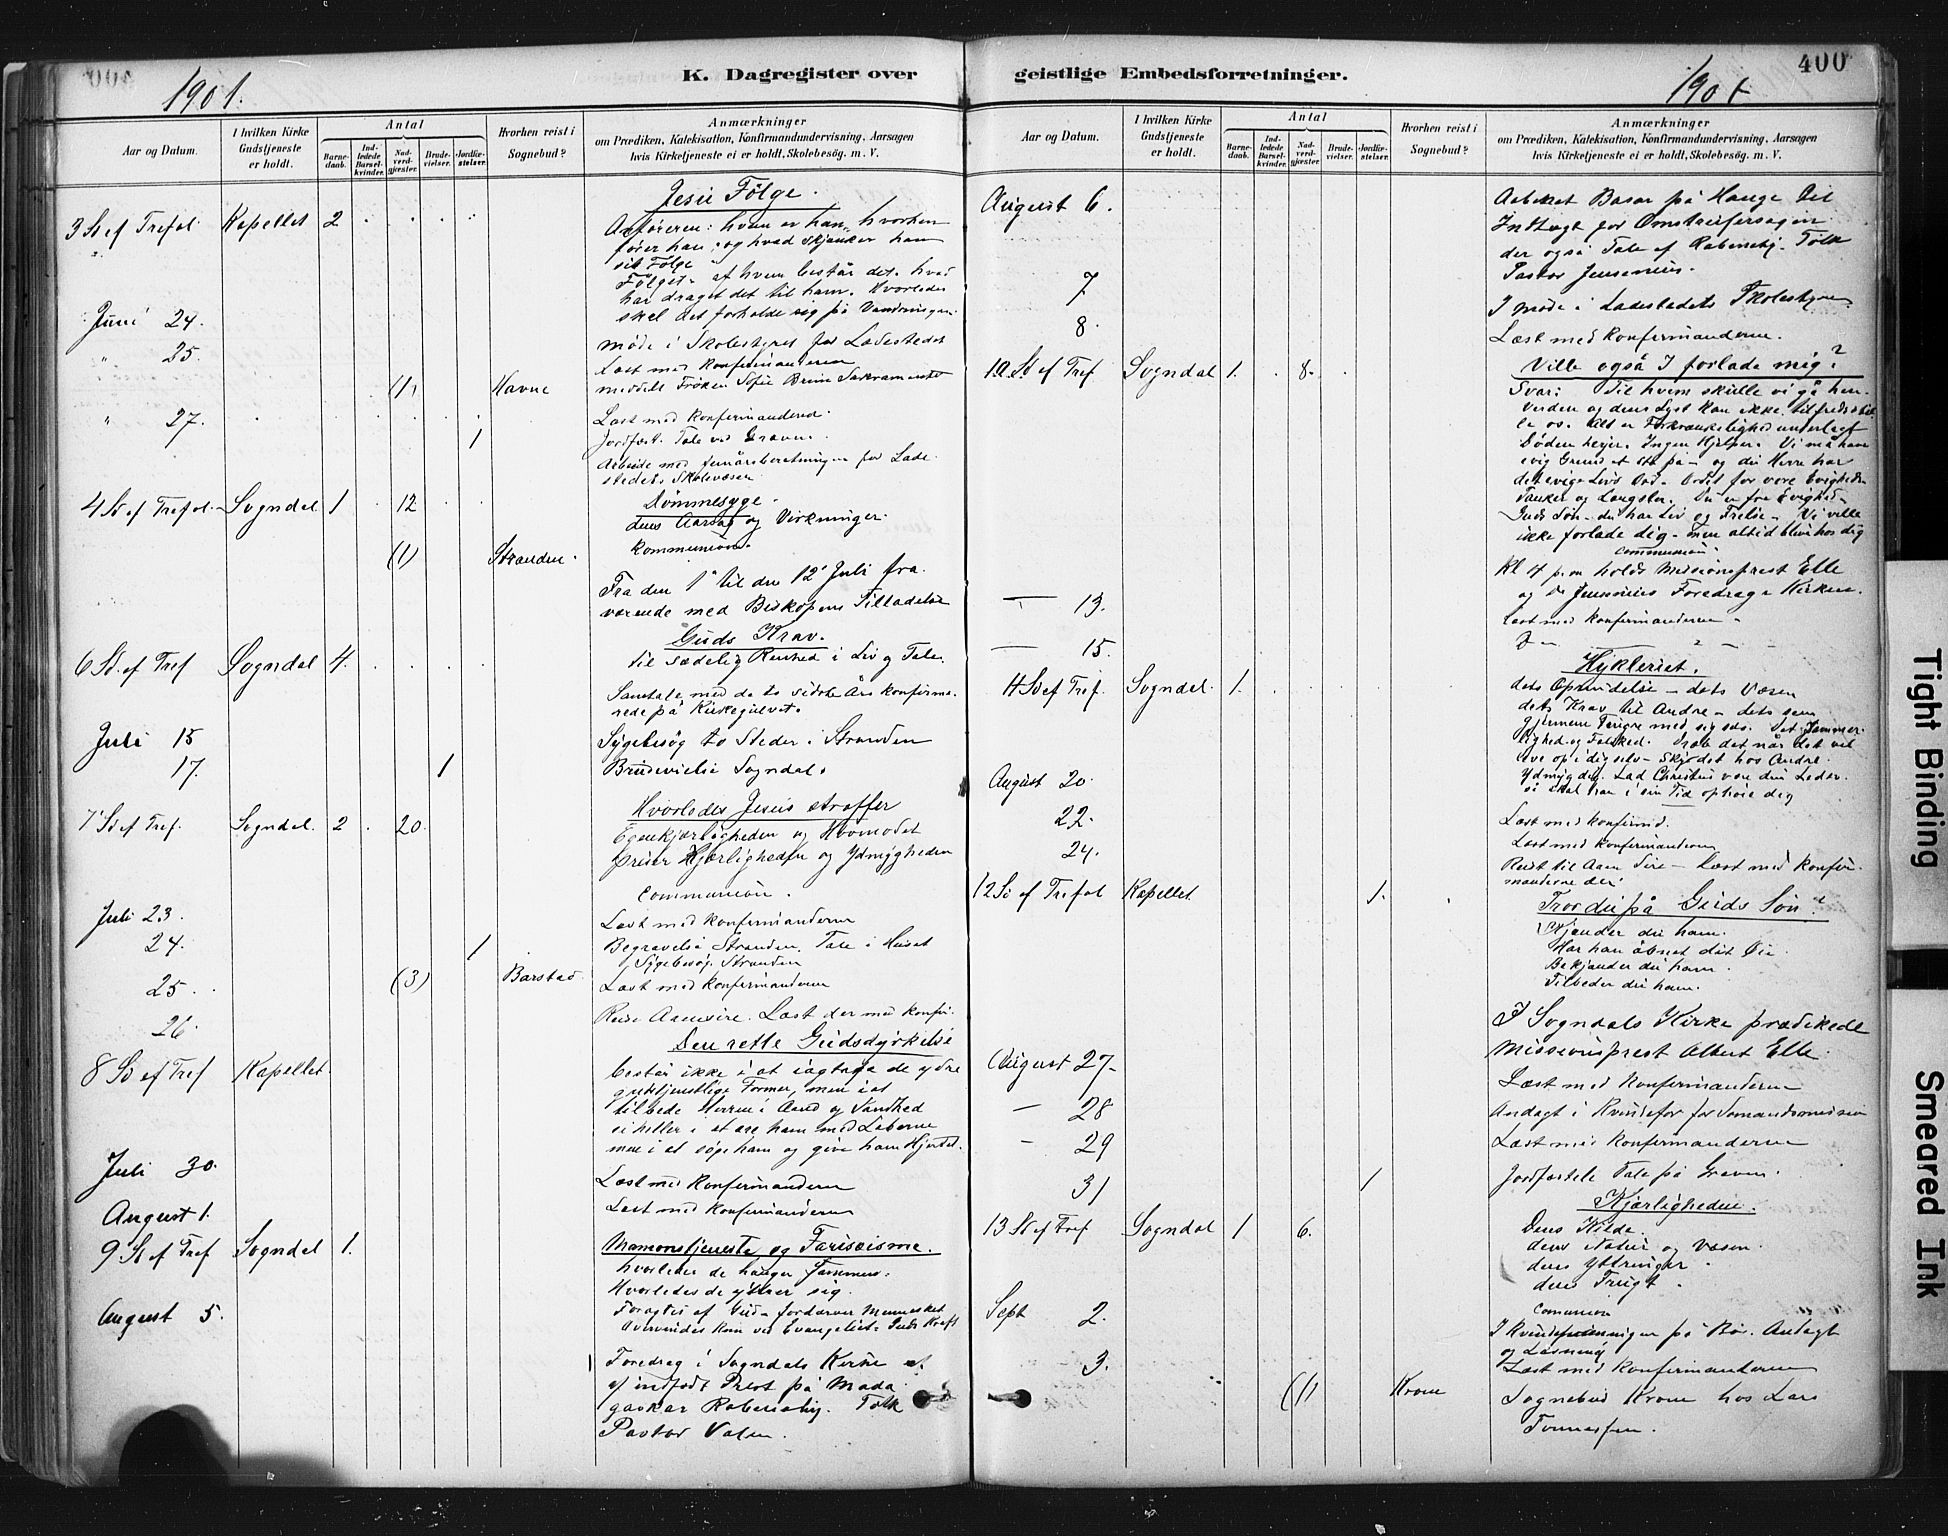 1901.
K. Dagregister over
Aar og Datum.
I hvilken Kirke Gudstjeneste er holdt.
Antal
Barnedaab.
Indledede Barselkvinder.
Nadverdgjæster.
Brudevielser.
Jordfæstelser.
Hvorhen reist i Sognebud?
Anmærkninger
om Prædiken, Katekisation, Konfirmandundervisning, Aarsagen
hvis Kirketjeneste ei er holdt, Skolebesøg. m. V.
Jesu Følge.
3 S. ef Trefol. Kapellet 2
Anføreren: hvem er han, hvorhen
fører han og hvad skjænker han
sit Følge
Følget - af hvem består det. hvad
har draget det til ham. Hvorledes
skal det forholde sig på Vandringen.
Juni 24. Møde i Skolestyret for Ladestedet
" 25. Læst med Konfirmanderne
(1) Havne meddelt Frøken Sofie Sakramentet
" 27. Læst med Konfirmanderne
1 Jordfæst. Tale ved Graven.
Arbeide med femårsberetningen for Lade-
stedets Skolevæsen
4 S. ef Trefol. Sogndal 1 12 Dømmesyge.
dens Aarsag og Virkninger.
(1) Stranden. Kommunion.
Fra den 1 til den 12 Juli fra-
værende med Biskopens Tilladelse
Guds Krav.
6 S. ef Tref Sogndal 4. til sædelig Renhed i Liv og Tale.
Samtale med de to sidste Års Konfirme-
rede på Kirkegulvet.
Juli 15 Sygebesøg to Steder i Stranden
17. 1 Brudevielse Sogndal.
Hvorledes Jesus straffer
7 S. ef Tref. Sogndal. 2 20. Egenkjærligheden og Hovmodet
Priser Kjærligheden og Ydmygheden
Communion.
Juli 23. Læst med Konfirmanderne
24. 1 Begravelse Stranden. Tale i Huset
Sygebesøg. Stranden
25. (3) Barstad Læst med Konfirmanderne
26. Reise Aaensire. Læst der med Konfir.
Den rette Gudsdyrkelse
8 S. ef Tref Kapellet. består ikke i at iagtage de ydre
gudstjenstlige Former, men i at
tilbede Herren i Aand og Sandhed
ei heller i at ære ham med Læberne
men i at søge ham og give ham Hjertet.
Juli 30. Læst med Konfirmanderne
August 1. Læst med Konfirmanderne
9 S. ef Tref Sogndal 1. Mamonstjeneste og Fariseisme.
hvorledes de hænger sammen:
Hvorledes de yttrer sig.
Foragtes af Gud - fordærver Mennesket
Overvindes kun ved Evangeliets Guds Kraft
August 5.
Foredrag i Sogndals Kirke
af indfødt Prest på Mada-
gaskar Tolk
Pastor Valen.
400
1901
geistlige Embedsforretninger.
Aar og Datum.
I hvilken Kirke Gudstjeneste er holdt.
Antal
Barnedaab.
Indledede Barselkvinder.
Nadverdgjæster.
Brudevielser.
Jordfæstelser.
Hvorhen reist i Sognebud?
Anmærkninger
om Prædiken, Katekisation, Konfirmandundervisning, Aarsagen
hvis Kirketjeneste ei er holdt, Skolebesøg. m. V.
August 6. Aabnet Basar på Hauge til
Indtægt for Omstreifersagen
der også Tale af Tolk
Pastor Jensenius.
7 I møde i Ladestedets Skolestyre
8. Læst med Konfirmanderne.
Ville også I forlade mig?
10. S. ef Tref. Sogndal 1. 8. Svar: Til hvem skulle vi gå hen.
Verden og dens Lyst kan ikke tilfredsstil-
le os. Alt er Forkrænkelighed underlagt
Døden leier. Ingen Hjælper. Vi må have
evig Grund at stå på - og du Herre har
det evige Livs Ord - Ordet for vore Evigheds-
Tanker og Længsler. Du er fra Evighed
Guds Søn - du har Liv og Frelse - Vi ville
ikke forlade dig - men altid blive hos dig
Communion.
Kl 4 p.m. holdt Missionsprest Elle
og Jensenius Foredrag i Kirken.
— 13. Læst med Konfirmanderne
— 15.
Hykleriet.
11 S. ef Tref. Sogndal. 1. dets Oprindelse - dets Væsen
dets Krav til Andre - dets som
Ydmyg dig. Lad Christus være din Leder.
så skal han i sin Tid ophøie dig
August 20. Læst med Konfirmd.
22. Læst med Konfirmanderne
24. Reist til Aaen Sire - Læst med Konfir-
manderne der.
12 S. ef Trefol Kapellet 1. Tror du på Guds Søn?
Kjender du ham.
Har han åbnet dit Øie.
Bekjender du ham.
Tilbeder du ham.
I Sogndals Kirke prædikede
Missionsprest Albert Elle.
August 27 Læst med Konfirmanderne
— 28 Andagt i Kvindefor. for Sømandsmission
— 29 Læst med Konfirmanderne
31 1 Jordfæstelse Tale på Graven.
Kjærligheden.
13 S. ef Tref Sogndal 1 6. Dens Kilde.
dens Natur og Væsen.
dens Yttringer.
dens Frugt.
Comunion
Sept 2. I Kvindeforeningen på Bø. Andagt
og Læsning
3. Læst med Konfirmanderne
(1) Krone Sognebud Krone hos Lars
Tønnesen.
Tight Binding
Smeared Ink